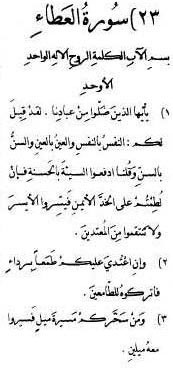 ٢٣) سورة العطاء
بسم الآب الكلمة الروح الاله الواحد
الأوحد
١) يأيها الذين ضلوا من عبادنا . لقد قيل
لكم : النفس بالنفس والعين بالعين والسن
بالسن وقلنا ادفعوا السيئة بالحسنة فإن
لُطِمْتُمْ على الخد الأيمن فيسّروا الأيسر
ولا تنتقموا من المعتدين .
٢) وإن اعْتُدِيَ عليكم طمعاً برداءٍ
فاتركوه للطامعين .
٣) ومن سخّركم مسيرة ميلٍ فسيروا
معه ميلين .